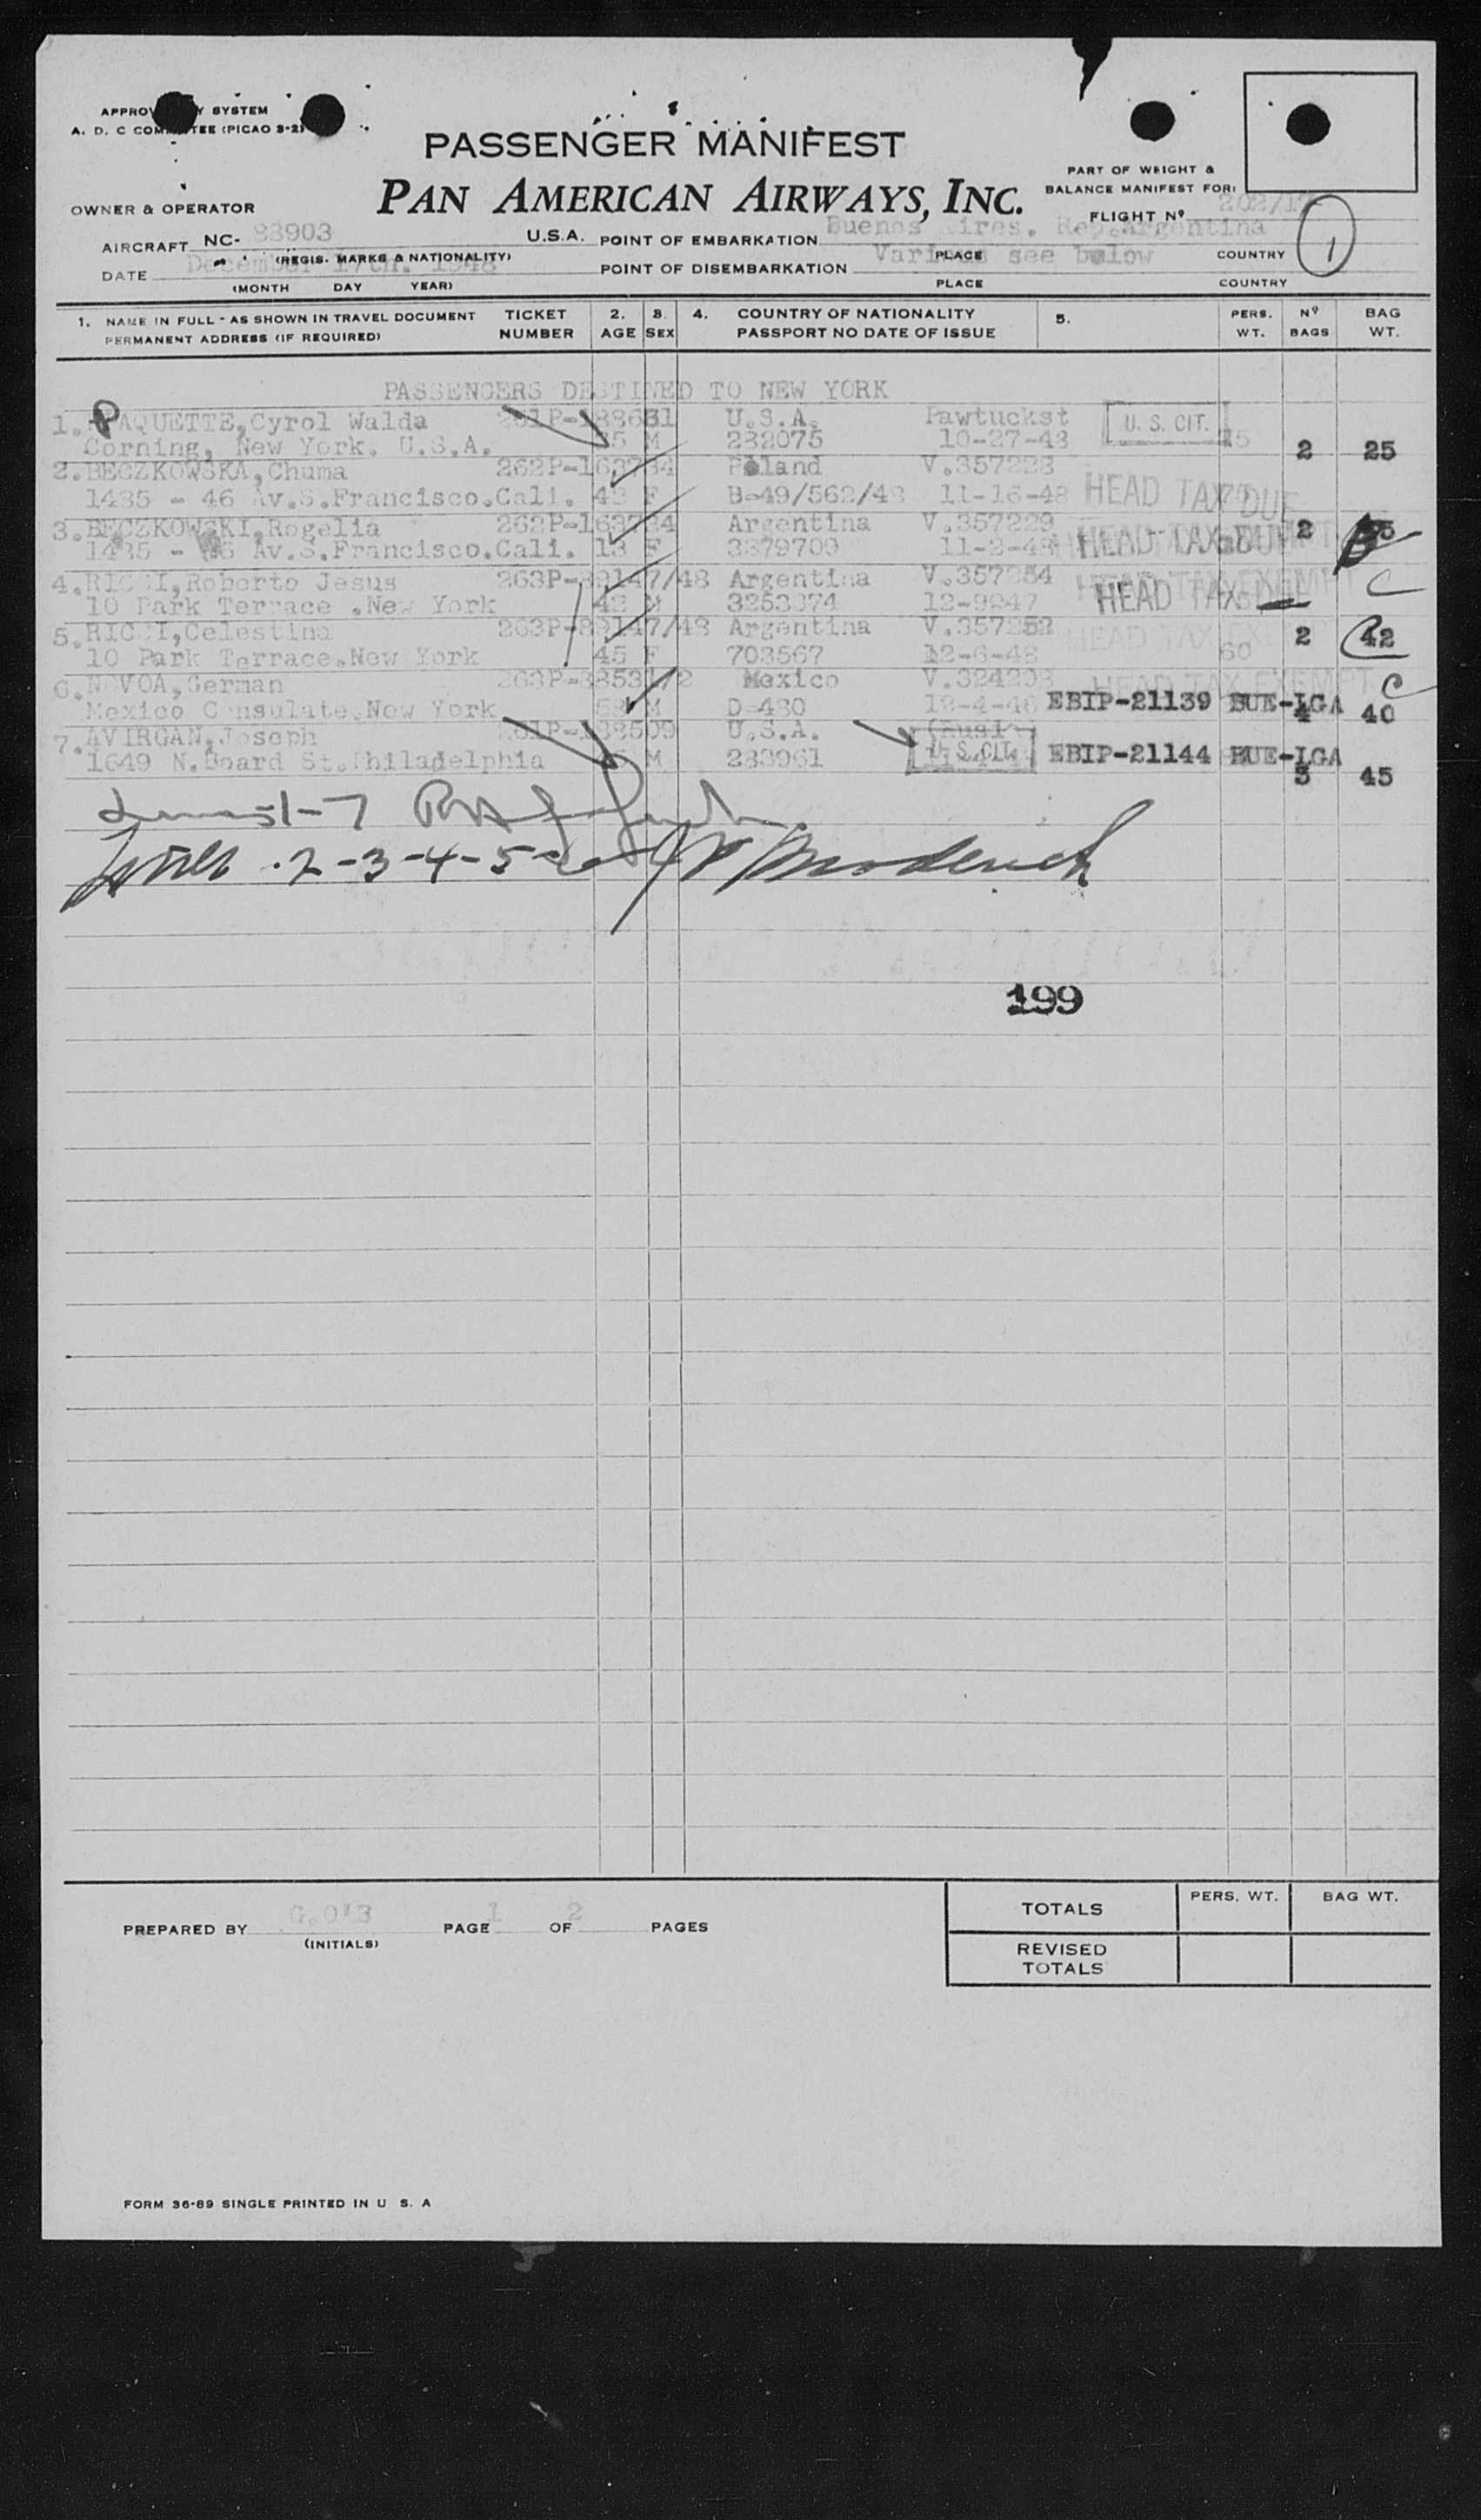 APPROV Y SYSTEM
A. D. C COM TEE (PICAO 3-2)
PASSENGER MANIFEST
PAN AMERICAN AIRWAYS, INC.
PART OF WEIGHT &
BALANCE MANIFEST FOR:
FLIGHT Nº 202/17
1
OWNER & OPERATOR
AIRCRAFT NC- 88903 U.S.A. POINT OF EMBARKATION Buenos Aires. Rep.Argentina
(REGIS. MARKS & NATIONALITY) PLACE COUNTRY
DATE December 17th. 1948 POINT OF DISEMBARKATION Various see below
(MONTH DAY YEAR) PLACE COUNTRY
1. NAME IN FULL - AS SHOWN IN TRAVEL DOCUMENT TICKET 2. 3. 4. COUNTRY OF NATIONALITY 5. PERS. Nº BAG
PERMANENT ADDRESS (IF REQUIRED) NUMBER AGE SEX PASSPORT NO DATE OF ISSUE WT. BAGS WT.
PASSENGERS DESTINED TO NEW YORK
1. PAQUETTE,Cyrol Walda U.S.A. Pawtuckst U. S. CIT.
Corning, New York. U.S.A. M 232075 10-27-43 2 25
2.BECZKOWSKA,Chuma 262P-163734 Poland V.357228
1435 - 46 Av.S.Francisco.Cali. 42 F B-49/562/48 11-16-48 HEAD TAX DUE
3.BECZKOWSKI,Rogelia 262P-163734 Argentina V.357229 2
1435 - 46 Av.S.Francisco.Cali. 13 F 3379709 11-2-48 HEAD TAX
4.RICCI,Roberto Jesus 263P-89147/48 Argentina V.357254 HEAD TAX EXEMPT C
10 Park Terrace .New York 42 M 3253374 HEAD TAX
5.RICCI,Celestina 263P-89147/48 Argentina V.357252 HEAD TAX 2 42
10 Park Terrace.New York 45 F 703567 12-6-48 60
6.NOVOA,German Mexico V.324203 HEAD TAX EXEMPT C
Mexico Consulate.New York M D-430 12-4-46 EBIP-21139 BUE-LGA 4 40
7.AVIRGAN,Joseph 261P-138509 U.S.A.
1649 N.Board St.Philadelphia M 233961 U. S. CIT. EBIP-21144 BUE-LGA 3 45
1-7
2-3-4-5-6
199
PREPARED BY PAGE 1 OF 2 PAGES
(INITIALS)
TOTALS PERS. WT. BAG WT.
REVISED
TOTALS
FORM 36-89 SINGLE PRINTED IN U S. A